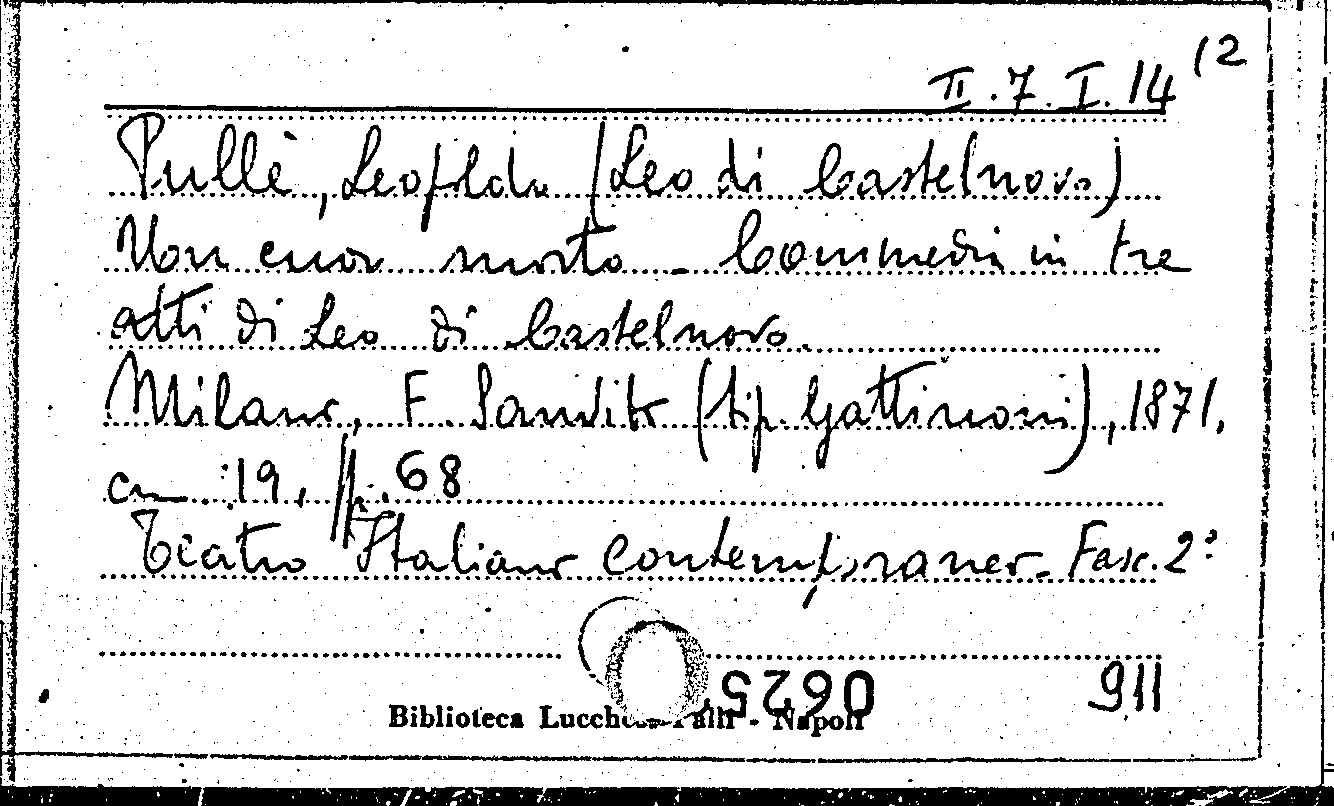 II.7.I.14 12
Pullè, Leopoldo (Leo di Castelnovo)
Un cuor morto - Commedia in tre
atti di Leo di Castelnovo.
Milano, F. Sanvito (tip. Gattinoni), 1871,
cm. 19, pp. 68
Teatro Italiano contemporaneo - Fasc. 2°
0625
911
Biblioteca Lucchesi Palli - Napoli